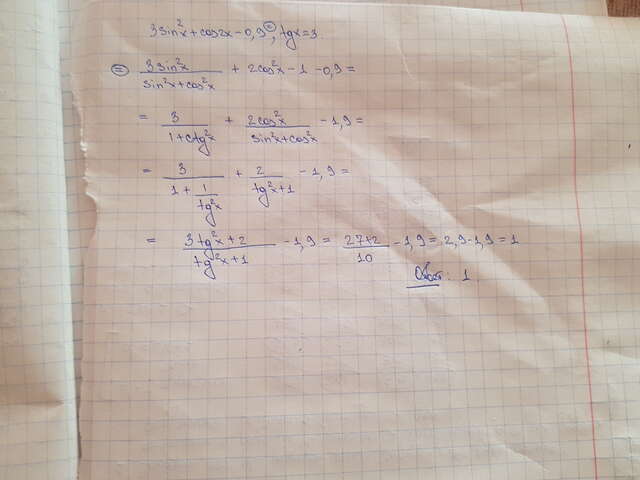 3sin²x+cos2x-0,9=, tgx=3.
= 3sin²x/(sin²x+cos²x) + 2cos²x-1-0,9=
= 3/(1+ctg²x) + 2cos²x/(sin²x+cos²x) -1,9=
= 3/(1+1/tg²x) + 2/(tg²x+1) -1,9=
= (3tg²x+2)/(tg²x+1) -1,9= (27+2)/10 -1,9= 2,9-1,9=1
Ответ: 1